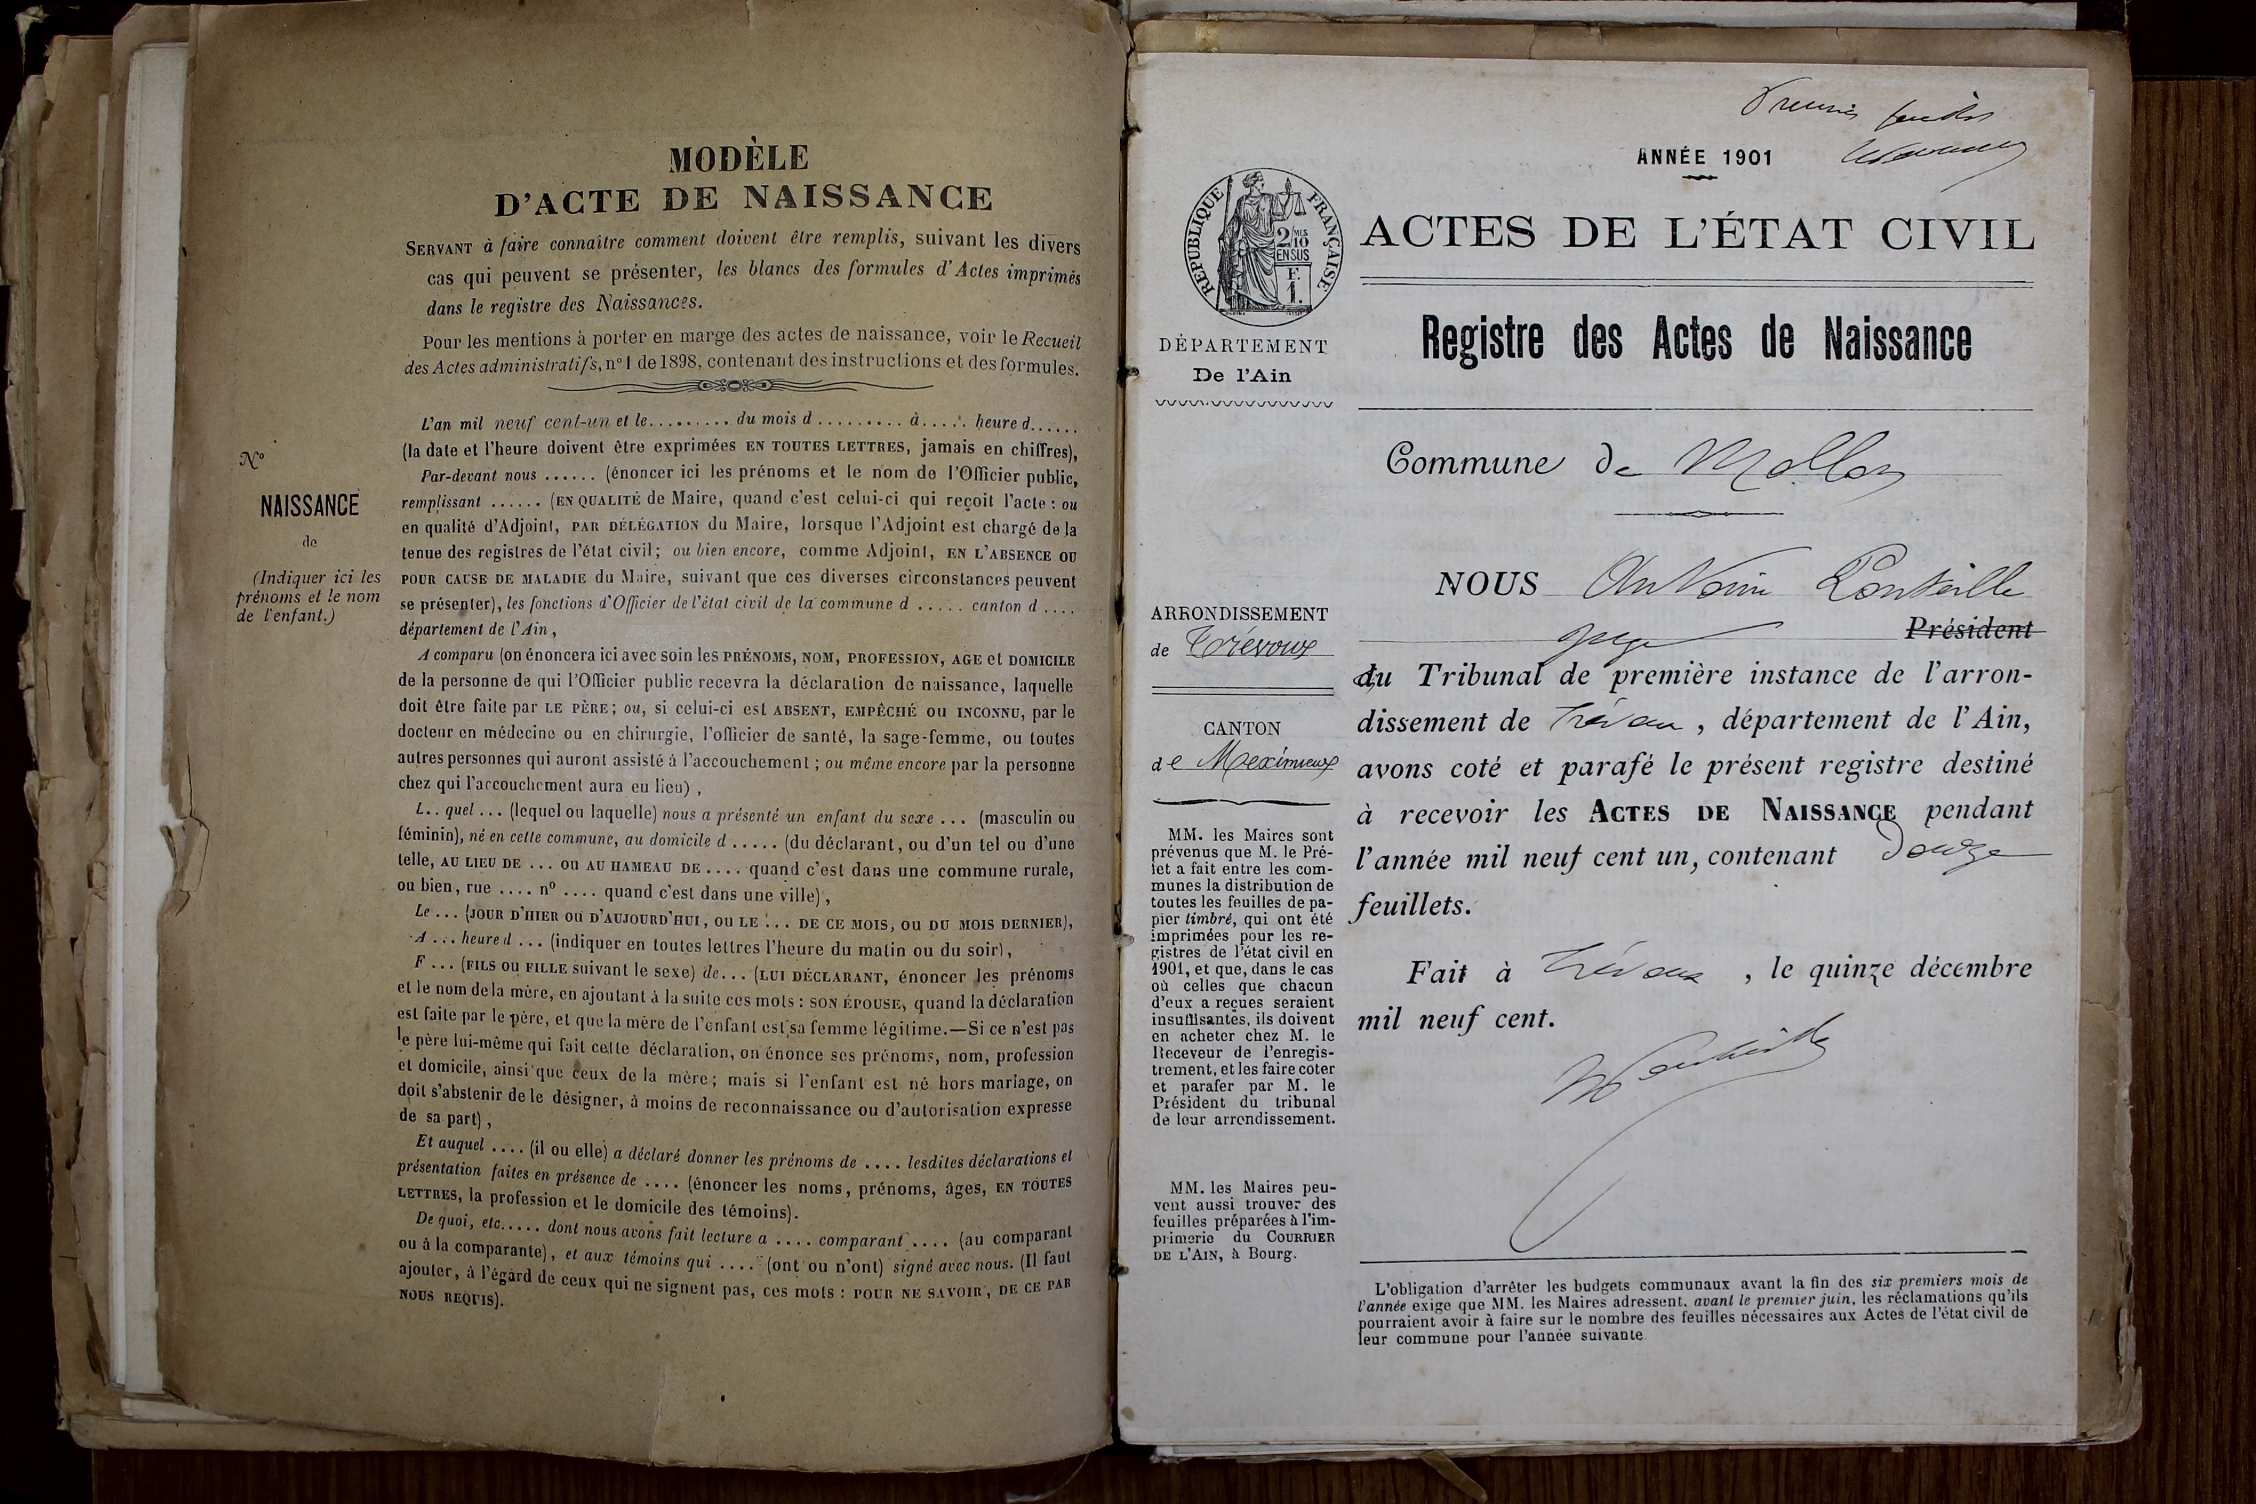 MODÈLE
D'ACTE DE NAISSANCE
SERVANT à faire connaître comment doivent être remplis, suivant les divers
cas qui peuvent se présenter, les blancs des formules d'Actes imprimés
dans le registre des Naissances.
Pour les mentions à porter en marge des actes de naissance, voir le Recueil
des Actes administratifs, n° 1 de 1898, contenant des instructions et des formules.
N°
NAISSANCE
de
(Indiquer ici les
prénoms et le nom
de l'enfant.)
L'an mil neuf cent-un et le ......... du mois d ......... à ..... heure d......
(la date et l'heure doivent être exprimées EN TOUTES LETTRES, jamais en chiffres),
Par-devant nous ...... (énoncer ici les prénoms et le nom de l'Officier public,
remplissant ...... (EN QUALITÉ de Maire, quand c'est celui-ci qui reçoit l'acte : ou
en qualité d'Adjoint, PAR DÉLÉGATION du Maire, lorsque l'Adjoint est chargé de la
tenue des registres de l'état civil; ou bien encore, comme Adjoint, EN L'ABSENCE OU
POUR CAUSE DE MALADIE du Maire, suivant que ces diverses circonstances peuvent
se présenter), les fonctions d'Officier de l'état civil de la commune d ..... canton d ....
département de l'Ain,
A comparu (on énoncera ici avec soin les PRÉNOMS, NOM, PROFESSION, AGE et DOMICILE
de la personne de qui l'Officier public recevra la déclaration de naissance, laquelle
doit être faite par LE PÈRE; ou, si celui-ci est ABSENT, EMPÊCHÉ OU INCONNU, par le
docteur en médecine ou en chirurgie, l'officier de santé, la sage-femme, ou toutes
autres personnes qui auront assisté à l'accouchement; ou même encore par la personne
chez qui l'accouchement aura eu lieu),
L.. quel ... (lequel ou laquelle) nous a présenté un enfant du sexe ... (masculin ou
féminin), né en cette commune, au domicile d ..... (du déclarant, ou d'un tel ou d'une
telle, AU LIEU DE ... OU AU HAMEAU DE .... quand c'est dans une commune rurale,
ou bien, rue .... n° .... quand c'est dans une ville),
Le ... (JOUR D'HIER OU D'AUJOURD'HUI, OU LE ... DE CE MOIS, OU DU MOIS DERNIER),
A ... heure d ... (indiquer en toutes lettres l'heure du matin ou du soir),
F ... (FILS OU FILLE suivant le sexe) de... (LUI DÉCLARANT, énoncer les prénoms
et le nom de la mère, en ajoutant à la suite ces mots : SON ÉPOUSE, quand la déclaration
est faite par le père, et que la mère de l'enfant est sa femme légitime.—Si ce n'est pas
le père lui-même qui fait cette déclaration, on énonce ses prénoms, nom, profession
et domicile, ainsi que ceux de la mère; mais si l'enfant est né hors mariage, on
doit s'abstenir de le désigner, à moins de reconnaissance ou d'autorisation expresse
de sa part),
Et auquel .... (il ou elle) a déclaré donner les prénoms de .... lesdites déclarations et
présentation faites en présence de .... (énoncer les noms, prénoms, âges, EN TOUTES
LETTRES, la profession et le domicile des témoins).
De quoi, etc..... dont nous avons fait lecture a .... comparant .... (au comparant
ou à la comparante), et aux témoins qui .... (ont ou n'ont) signé avec nous. (Il faut
ajouter, à l'égard de ceux qui ne signent pas, ces mots : POUR NE SAVOIR, DE CE PAR
NOUS REQUIS).
Premier feuillet
ANNÉE 1901
RÉPUBLIQUE FRANÇAISE
2/10 MES
EN SUS
F.
1.
ACTES DE L'ÉTAT CIVIL
Registre des Actes de Naissance
DÉPARTEMENT
De l'Ain
Commune de Mollon
ARRONDISSEMENT
de Trévoux
CANTON
de Meximieux
MM. les Maires sont
prévenus que M. le Pré-
fet a fait entre les com-
munes la distribution de
toutes les feuilles de pa-
pier timbré, qui ont été
imprimées pour les re-
gistres de l'état civil en
1901, et que, dans le cas
où celles que chacun
d'eux a reçues seraient
insuffisantes, ils doivent
en acheter chez M. le
Receveur de l'enregis-
trement, et les faire coter
et parafer par M. le
Président du tribunal
de leur arrondissement.
MM. les Maires peu-
vent aussi trouver des
feuilles préparées à l'im-
primerie du COURRIER
DE L'AIN, à Bourg.
NOUS Antoine Ponteille
juge Président
du Tribunal de première instance de l'arron-
dissement de Trévoux, département de l'Ain,
avons coté et parafé le présent registre destiné
à recevoir les ACTES DE NAISSANCE pendant
l'année mil neuf cent un, contenant Douze
feuillets.
Fait à Trévoux, le quinze décembre
mil neuf cent.
L'obligation d'arrêter les budgets communaux avant la fin des six premiers mois de
l'année exige que MM. les Maires adressent, avant le premier juin, les réclamations qu'ils
pourraient avoir à faire sur le nombre des feuilles nécessaires aux Actes de l'état civil de
leur commune pour l'année suivante